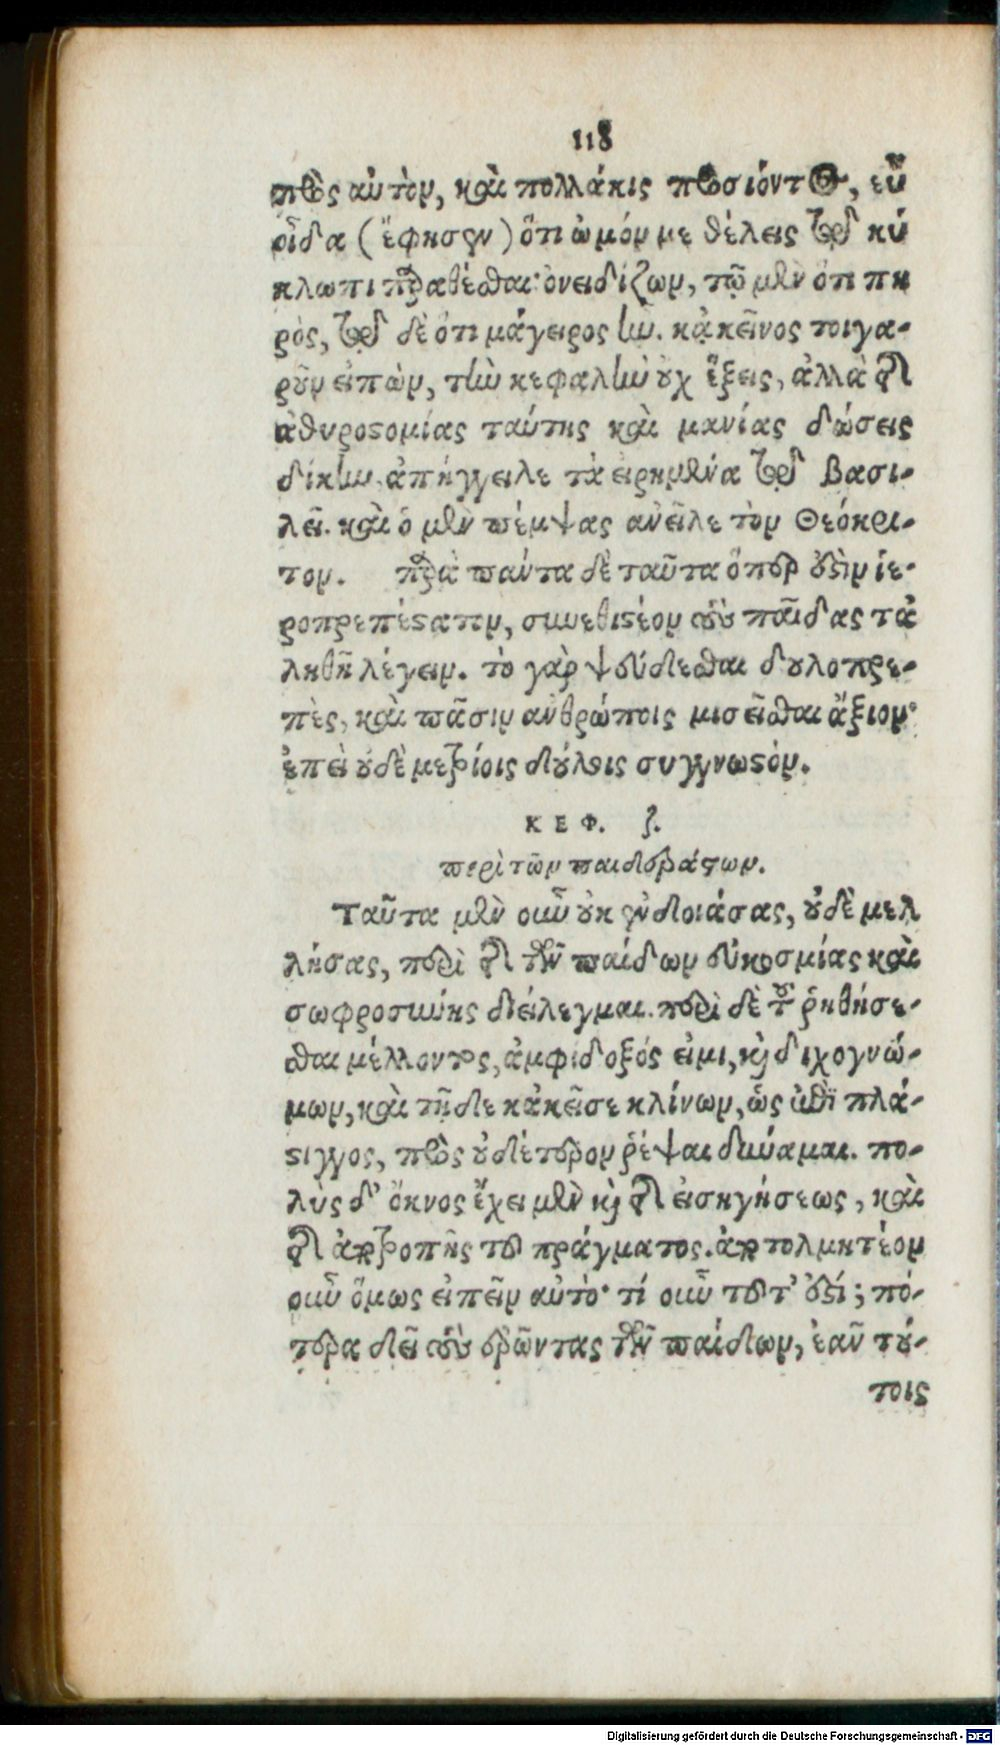 118
πρὸς αὐτὸν, καὶ πολλάκις προσιόντος, εὖ
οἶδα (ἔφησεν) ὅτι ὠμόν με θέλεις τῷ κύ
κλωπι παραθέσθαι· ὀνειδίζων, τῷ μὲν ὅτι πη
ρὸς, τῷ δὲ ὅτι μάγειρος ἦν. κἀκεῖνος τοιγα-
ροῦν εἰπὼν, τὴν κεφαλὴν οὐχ ἕξεις, ἀλλὰ τῆς
ἀθυροστομίας ταύτης καὶ μανίας δώσεις
δίκην, ἀπήγγειλε τὰ εἰρημένα τῷ βασι-
λεῖ. καὶ ὁ μὲν πέμψας ἀνεῖλε τὸν Θεόκρι-
τον. παρὰ πάντα δὲ ταῦτα ὅπερ ἐστὶν ἱε-
ροπρεπέστατον, συνεθιστέον τοὺς παῖδας τἀ
ληθῆ λέγειν. τὸ γὰρ ψεύδεσθαι δουλοπρε-
πὲς, καὶ πᾶσιν ἀνθρώποις μισεῖσθαι ἄξιον·
ἐπεὶ οὐδὲ μετρίοις δούλοις συγγνωστόν.
ΚΕΦ. ζ.
περὶ τῶν παιδεραστων.
Ταῦτα μὲν οὖν οὐκ ἐνδοιάσας, οὐδὲ μελ
λήσας, περὶ τῆς τῶν παίδων εὐκοσμίας καὶ
σωφροσύνης διείλεγμαι. περὶ δὲ τοῦ ῥηθήσε-
σθαι μέλλοντος, ἀμφίδοξός εἰμι, καὶ διχογνώ-
μων, καὶ τῇδε κἀκεῖσε κλίνων, ὡς ἐπὶ πλά-
στιγγος, πρὸς οὐδέτερον ῥέψαι δύναμαι. πο-
λὺς δ' ὄκνος ἔχει μὲν καὶ τῆς εἰσηγήσεως, καὶ
τῆς ἀποτροπῆς τοῦ πράγματος. ἀποτολμητέον
οὖν ὅμως εἰπεῖν αὐτό· τί οὖν τοῦτ' ἐστί; πό-
τερα δεῖ τοὺς ἐρῶντας τῶν παίδων, ἐᾶν τού-
τοις
Digitalisierung gefördert durch die Deutsche Forschungsgemeinschaft - DFG